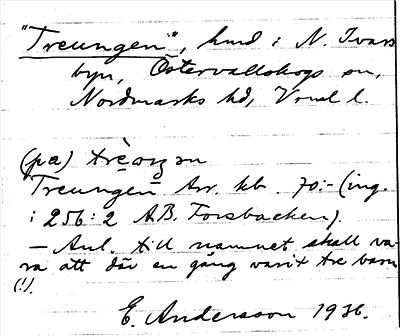 "Treungen", hmd i N. Ivars
byn, Östervallskogs sn,
Nordmarks hd, Vrml l.
(på) trè̱ o̱ŋ ən
Treungen Arr. kb. 70:- (ing.
i 256:2 AB. Forsbacken).
— Anl. till namnet skall va-
ra att där en gång varit tre barn
(!).
E. Andersson 1936.